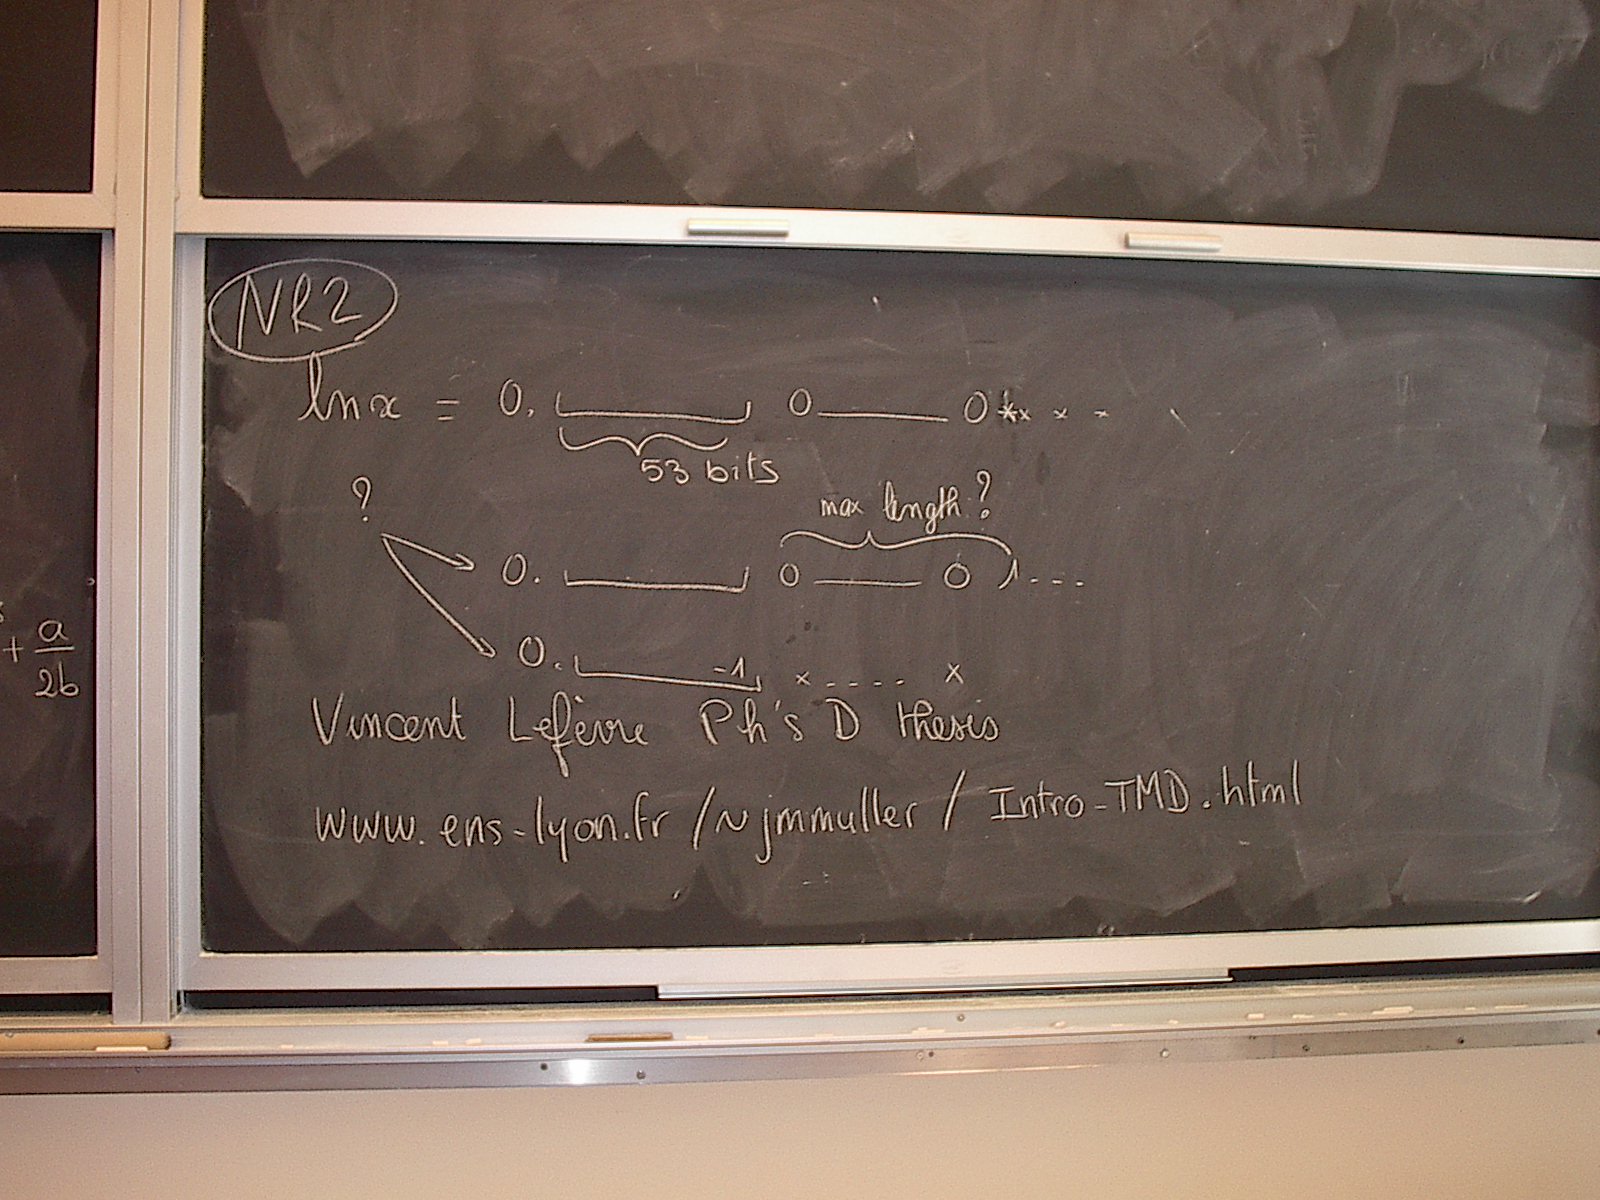 NR2
ln x = 0. 0 — 0 * x x x
53 bits
?
max length ?
0. 0 — 0 1 - - -
0. -1 x - - - - x
Vincent Lefèvre Ph's D thesis
www.ens-lyon.fr/~jmmuller/Intro-TMD.html
+ a/2b